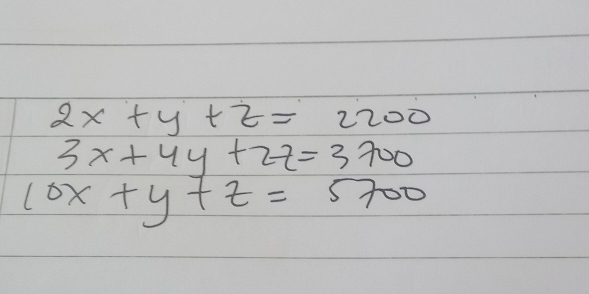 2x + y + z = 2200
3x + 4y + 2z = 3700
10x + y + z = 5700